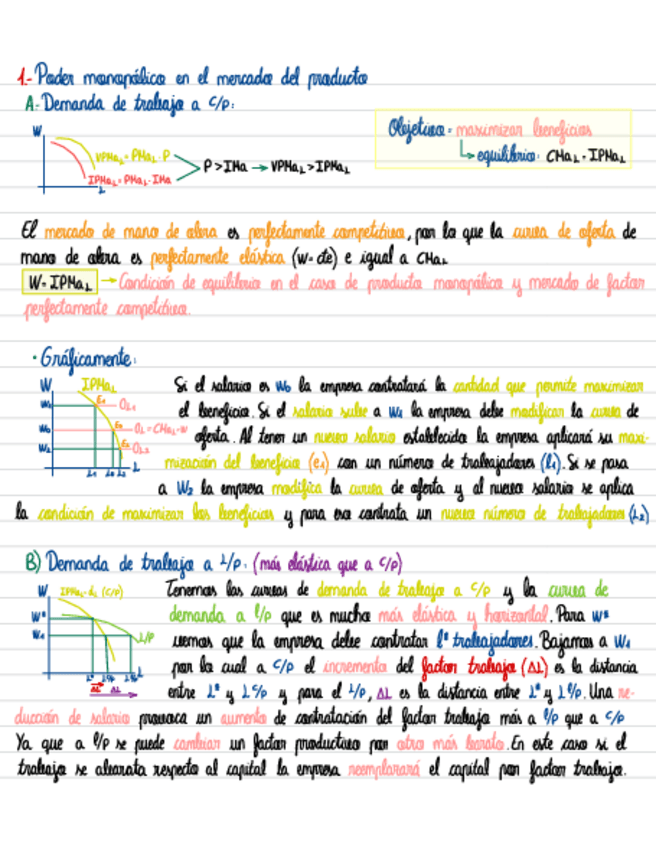 1.- Poder monopólico en el mercado del producto
A.- Demanda de trabajo a c/p:
W
VPMaL = PMaL · P
IPMaL = PMaL · IMa
L
P > IMa → VPMaL > IPMaL
Objetivo = maximizar beneficios
equilibrio: CMaL = IPMaL
El mercado de mano de obra es perfectamente competitivo, por lo que la curva de oferta de
mano de obra es perfectamente elástica (w = cte) e igual a CMaL
W = IPMaL → Condición de equilibrio en el caso de producto monopólico y mercado de factor
perfectamente competitivo.
· Gráficamente:
W IPMaL
W1 E1 OL1
W0 E0 OL = CMaL = W
W2 E2 OL2
L1 L0 L2 L
Si el salario es W0 la empresa contratará la cantidad que permite maximizar
el beneficio. Si el salario sube a W1 la empresa debe modificar la curva de
oferta. Al tener un nuevo salario establecido la empresa aplicará su maxi-
mización del beneficio (e1) con un número de trabajadores (l1). Si se pasa
a W2 la empresa modifica la curva de oferta y al nuevo salario se aplica
la condición de maximizar los beneficios y para eso contrata un nuevo número de trabajadores (L2)
B) Demanda de trabajo a L/P: (más elástica que a c/p)
W IPMaL = dL (c/p)
W*
W1 L/P
L* Lc/p Ll/p L
ΔL
ΔL
Tenemos las curvas de demanda de trabajo a c/p y la curva de
demanda a l/p que es mucho más elástica y horizontal. Para w*
vemos que la empresa debe contratar l* trabajadores. Bajamos a W1
por lo cual a c/p el incremento del factor trabajo (ΔL) es la distancia
entre L* y Lc/p y para el L/p, ΔL es la distancia entre L* y Ll/p. Una re-
ducción de salario provoca un aumento de contratación del factor trabajo más a l/p que a c/p
Ya que a l/p se puede cambiar un factor productivo por otro más barato. En este caso si el
trabajo se abarata respecto al capital la empresa reemplazará el capital por factor trabajo.